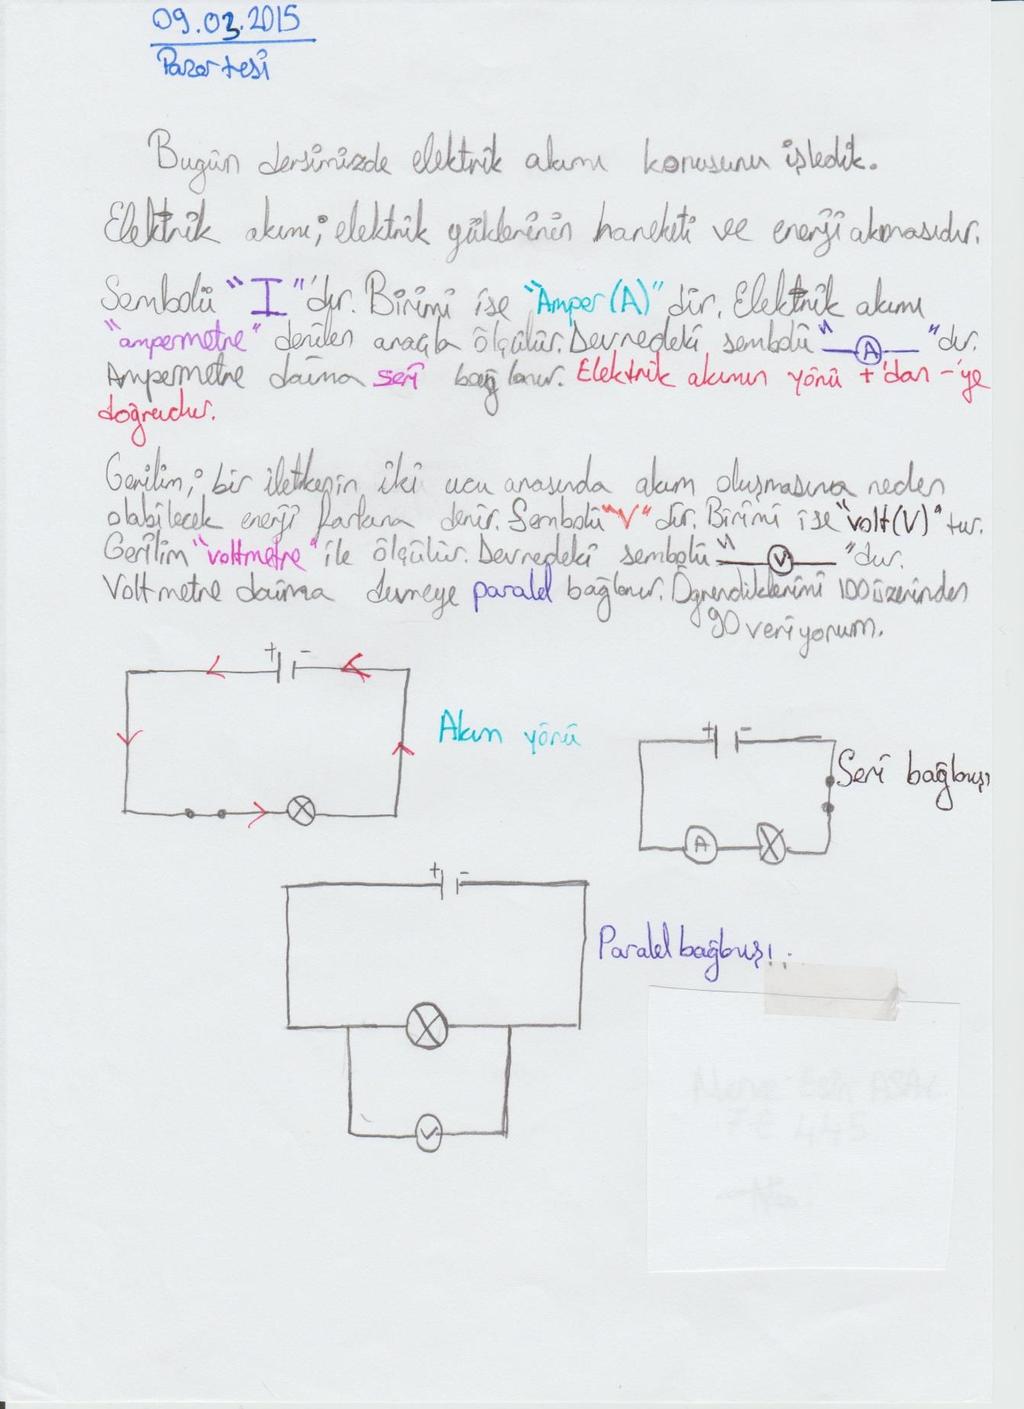 09.03.2015
Pazartesi
Bugün dersimizde elektrik akımı konusunu işledik.
Elektrik akımı; elektrik yüklerinin hareketi ve enerji akmasıdır.
Sembolü "I" dır. Birimi ise "Amper (A)" dir. Elektrik akımı
"ampermetre" denilen araçla ölçülür. Devredeki sembolü "A" dır.
Ampermetre daima seri bağlanır. Elektrik akımın yönü + 'dan - 'ye
doğrudur.
Gerilim; bir iletkenin iki ucu arasında akım oluşmasına neden
olabilecek enerji farkına denir. Sembolü "V" dir. Birimi ise "volt(V)" tur.
Gerilim "voltmetre" ile ölçülür. Devredeki sembolü "V" dur.
Voltmetre daima devreye paralel bağlanır. Öğrendiklerimi 100 üzerinden
90 veriyorum.
+ -
Akım yönü
+ -
Seri bağlanış
A
+ -
Paralel bağlanış!
V